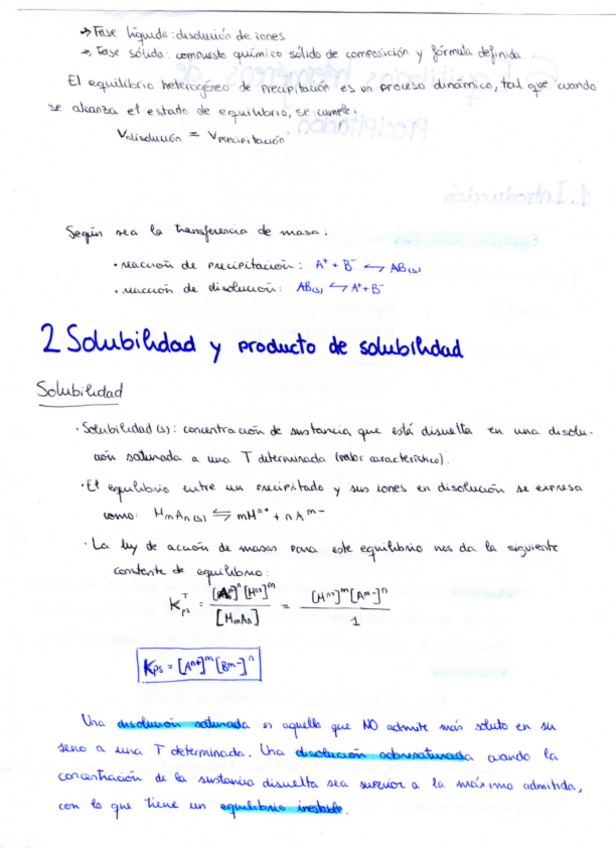 → Fase líquida: disolución de iones
→ Fase sólida: compuesto químico sólido de composición y fórmula definida
El equilibrio heterogéneo de precipitación es un proceso dinámico, tal que cuando
se alcanza el estado de equilibrio, se cumple:
Vdisolución = Vprecipitación
Según sea la transferencia de masa:
· reacción de precipitación: A⁺ + B⁻ ⇆ AB(s)
· reacción de disolución: AB(s) ⇆ A⁺ + B⁻
2 Solubilidad y producto de solubilidad
Solubilidad
· Solubilidad (s): concentración de sustancia que está disuelta en una disolu-
ción saturada a una T determinada (valor característico).
· El equilibrio entre un precipitado y sus iones en disolución se expresa
como: MmAn(s) ⇆ mMⁿ⁺ + nAᵐ⁻
· La ley de acción de masas para este equilibrio nos da la siguiente
constante de equilibrio:
Kps^T = [A]ⁿ[Mⁿ⁺]ᵐ / [MmAn] = [Mⁿ⁺]ᵐ[Aᵐ⁻]ⁿ / 1
Kps = [Aⁿ⁺]ᵐ[Bᵐ⁻]ⁿ
Una disolución saturada es aquella que NO admite más soluto en su
seno a una T determinada. Una disolución sobresaturada cuando la
concentración de la sustancia disuelta sea superior a la máxima admitida,
con lo que tiene un equilibrio inestable.